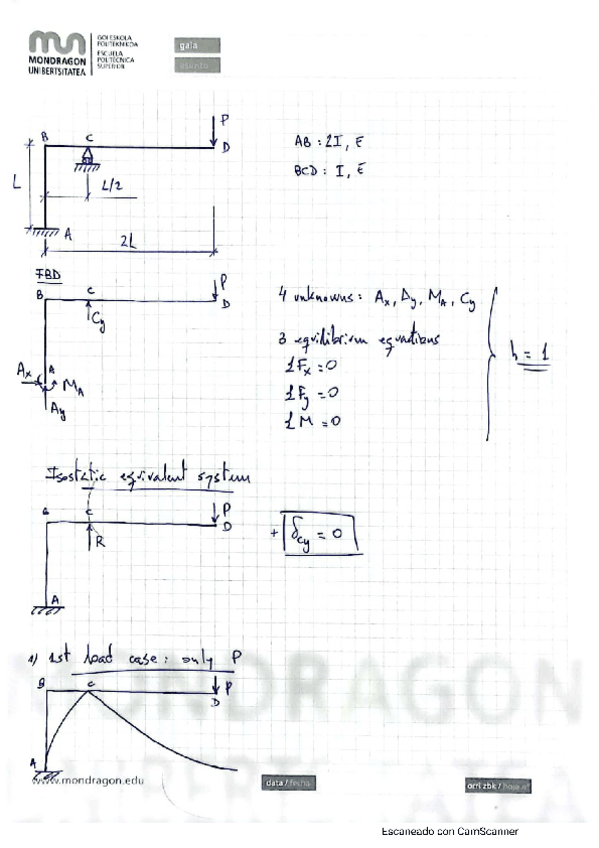 MONDRAGON
UNIBERTSITATEA
GOI ESKOLA
POLITEKNIKOA
ESCUELA
POLITÉCNICA
SUPERIOR
gaia
asunto
P
B C D
AB : 2I, E
BCD : I, E
L
L/2
A
2L
FBD
P
B C D
Cy
4 unknowns: Ax, Ay, MA, Cy
3 equilibrium equations
ΣFx = 0
ΣFy = 0
ΣM = 0
h = 1
Ax A MA
Ay
Isostatic equivalent system
P
B C D
R
+ δcy = 0
A
1) 1st load case: only P
B C P
D
A
www.mondragon.edu
data / fecha
orri zbk / hoja nº
MONDRAGON
UNIBERTSITATEA
Escaneado con CamScanner